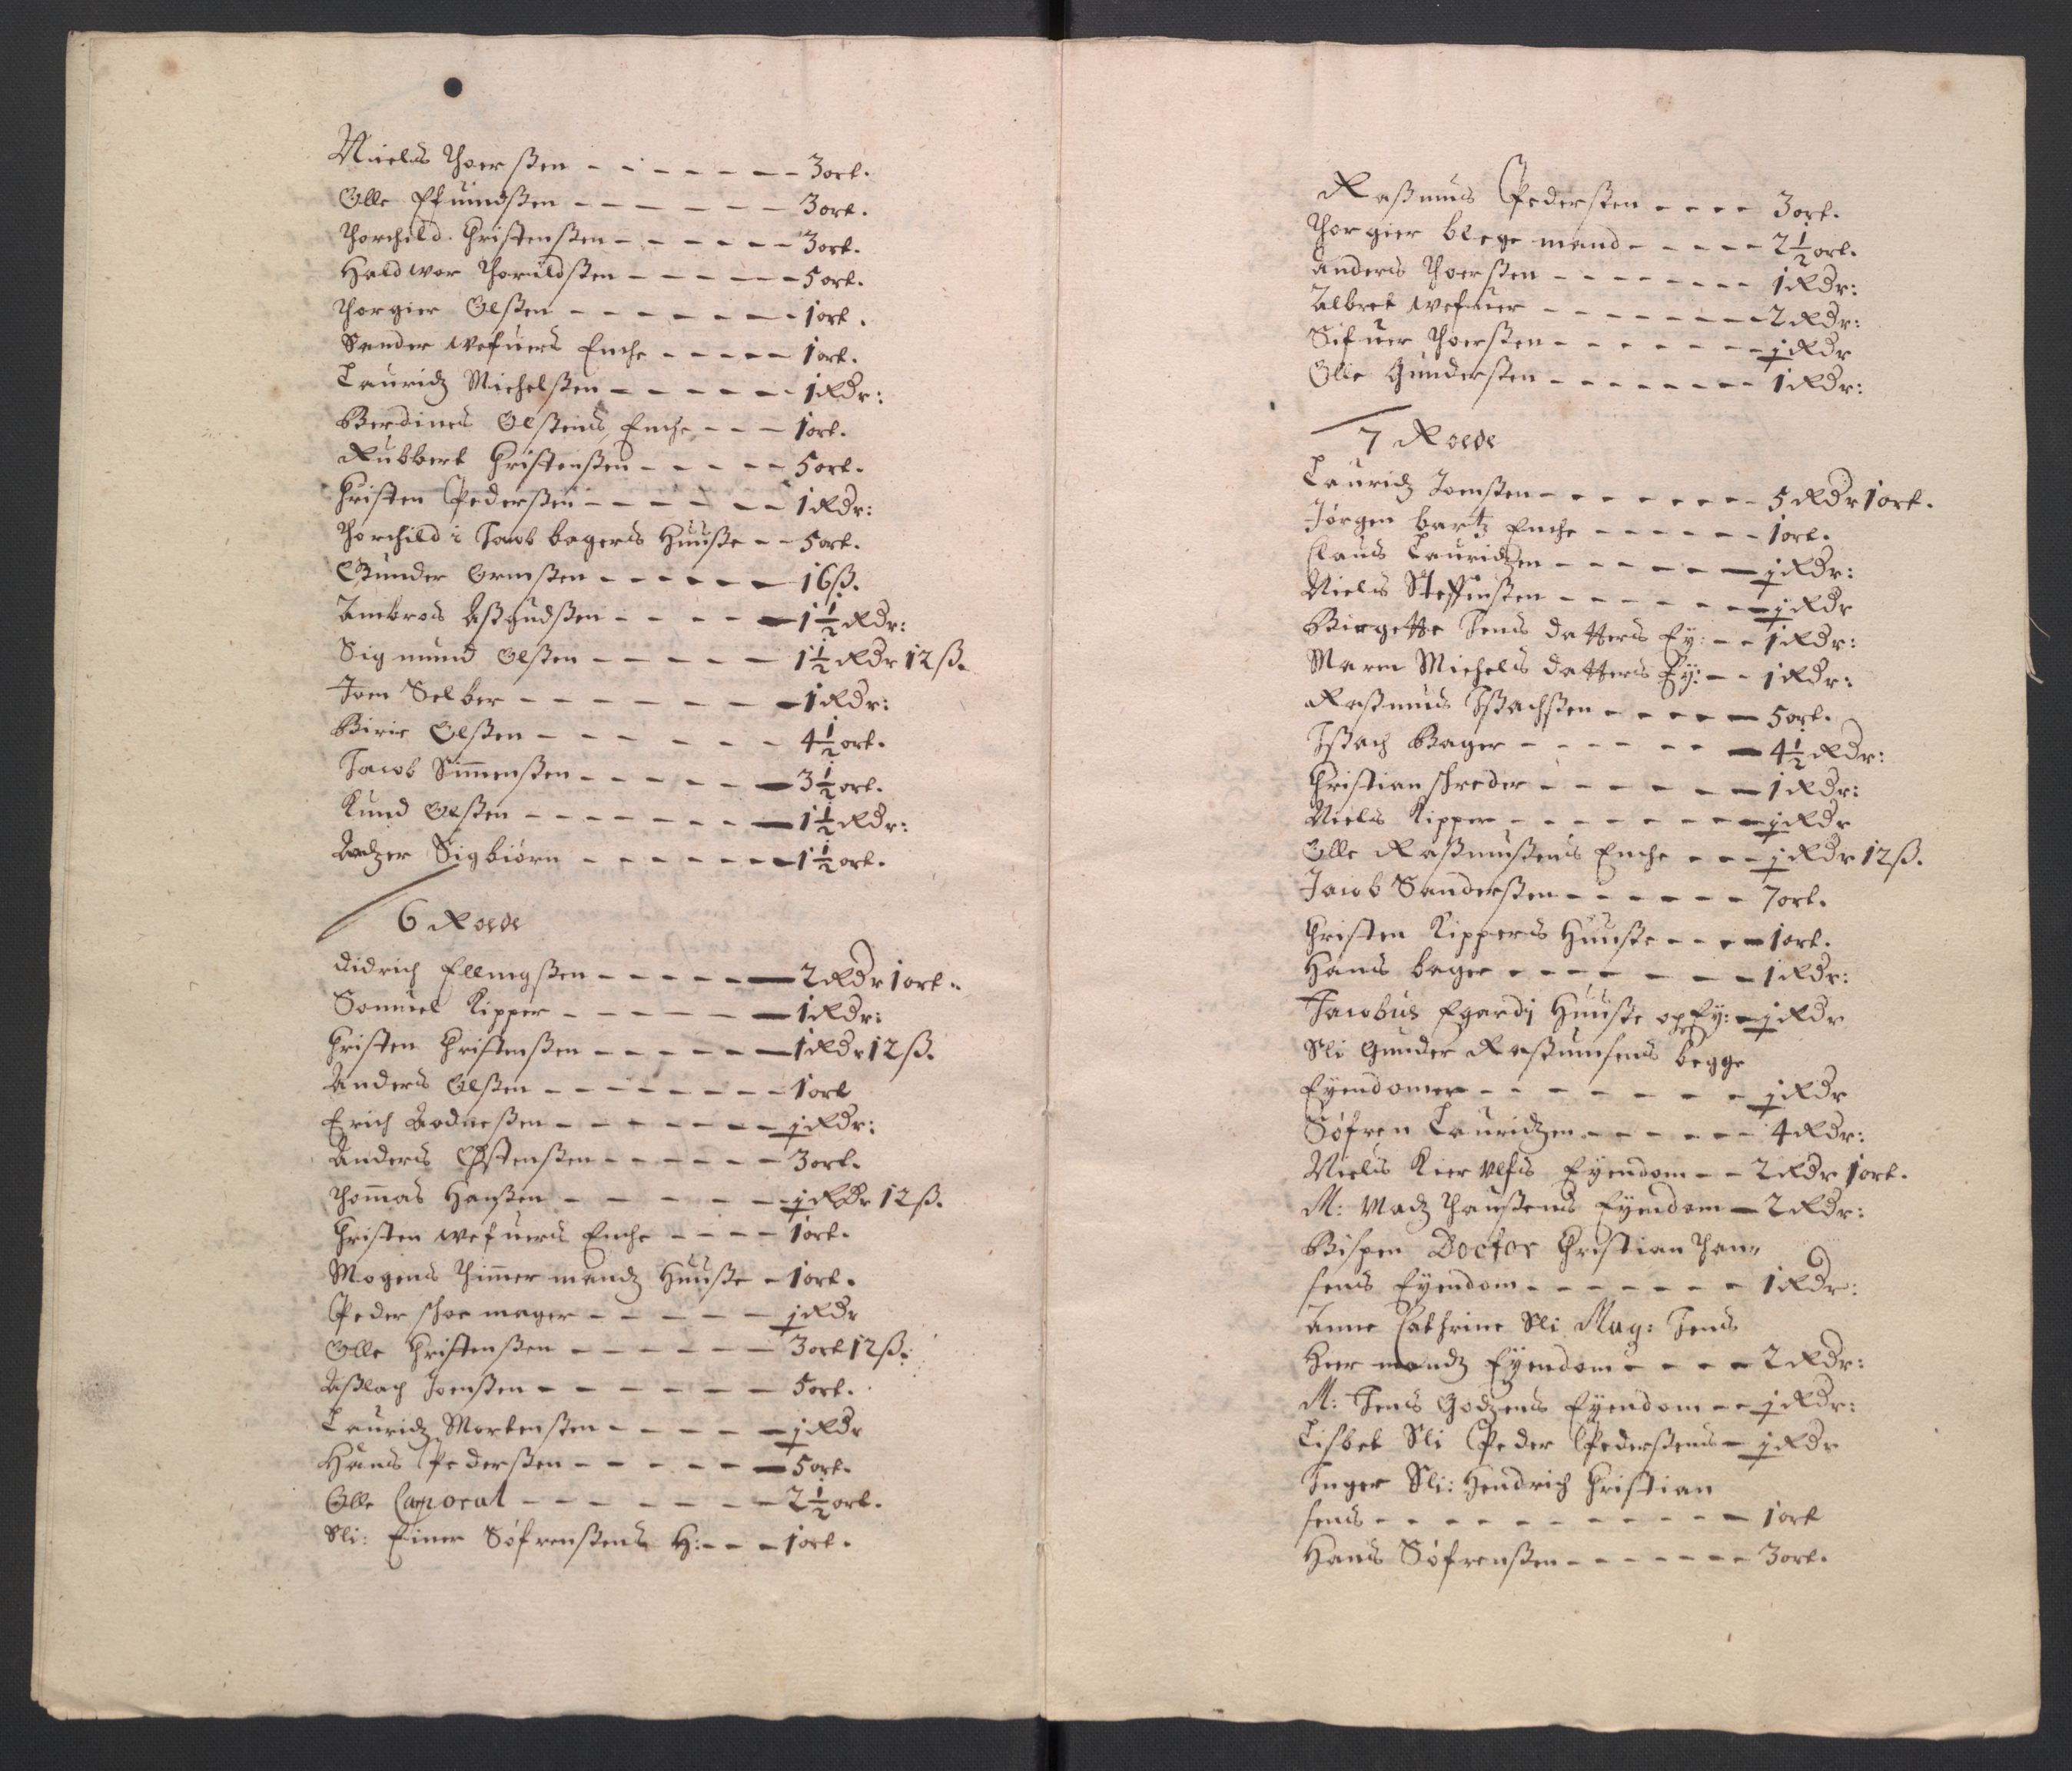 Niels Thoersßen - - - - - - - 3 ort.
Olle Efuindsßen - - - - - - - 3 ort.
Thorchild Christensßen - - - - - - 3 ort.
Haldwor Thorildsßen - - - - - - 5 ort.
Thorgier Olsßen - - - - - - - 1 ort.
Sander Wefuers Enche - - - - - 1 ort.
Lauridz Michelsßen - - - - - - 1 Rdr:
Berdines Olsßens Enche - - - 1 ort.
Rubbert Christensßen - - - - - 5 ort.
Christen Pedersßen - - - - - - 1 Rdr:
Thorchild i Jacob bagers Huusße - - 5 ort.
Gunder Ormsßen - - - - - - 16 ß.
Ambros Asßgudsßen - - - - - 1 1/2 Rdr:
Sigmund Olsßen - - - - - 1 1/2 Rdr 12 ß.
Joen Selber - - - - - - - 1 Rdr:
Birie Olsßen - - - - - - 4 1/2 ort.
Jacob Simensßen - - - - - - 3 1/2 ort.
Knud Olsßen - - - - - - - 1 1/2 Rdr:
Sigbiørn - - - - - - 1 1/2 ort.
6 Roede
Didrich Ellingsßen - - - - - 2 Rdr 1 ort.
Samuel Kipper - - - - - - 1 Rdr:
Christen Christensßen - - - - - - 1 Rdr 12 ß.
Anders Olsßen - - - - - - - 1 ort
Erich Aodnesßen - - - - - - - j Rdr:
Anders Østensßen - - - - - - 3 ort.
Thomas Hansßen - - - - - j Rdr 12 ß.
Christen Wefuers Enche - - - - 1 ort.
Mogens Thimmermandz Huusße - 1 ort.
Peder Schoemager - - - - - j Rdr
Olle Christensßen - - - - - - 3 ort 12 ß.
Asßlach Joensßen - - - - - - 5 ort.
Lauridz Mortensßen - - - - - j Rdr
Hans Pedersßen - - - - - - 5 ort.
Olle Caporal - - - - - - - 2 1/2 ort.
Sli: Einer Søfrensßens H: - - - 1 ort.
Rasßmus Pedersßen - - - - 3 ort.
Thorgier blegemand - - - - - 2 1/2 ort.
Anders Thoersßen - - - - - - - 1 Rdr:
Albret Wefuer - - - - - - - 2 Rdr:
Sifuer Thoersßen - - - - - - - j Rdr
Olle Gundersßen - - - - - - - 1 Rdr:
7 Roede
Lauridz Joensßen - - - - - - - 5 Rdr 1 ort.
Jørgen bartz Enche - - - - - - 1 ort.
Claus Lauridzen - - - - - - j Rdr:
Niels Steffensßen - - - - - - - j Rdr
Birgette Jens datters Ey: - - 1 Rdr:
Maren Michels datters Ey: - - 1 Rdr:
Rasßmus Isßachsßen - - - - - 5 ort.
Isßach Bager - - - - - - - 4 1/2 Rdr:
Christian Schreder - - - - - - 1 Rdr:
Niels Kipper - - - - - - - j Rdr
Olle Rasßmusßens Enche - - - j Rdr 12 ß.
Jacob Sandersßen - - - - - - 7 ort.
Christen Kippers Huusße - - - - 1 ort.
Hans bager - - - - - - - 1 Rdr:
Jacobus Egardj Huusße og Ey: - j Rdr
Sli Gunder Rasßmusens begge
Eyendomer - - - - - - - j Rdr
Søfren Lauridzen - - - - - - 4 Rdr:
Niels Kier Ulfs Eyendom - - 2 Rdr 1 ort.
M: Madz Thausßens Eyendom - 2 Rdr:
Bispen Doctor Christian Thau,,
sens Eyendom - - - - - - - 1 Rdr:
Anne Cathrine Sli Mag: Jens
Heermandz Eyendom - - - - 2 Rdr:
M: Jens Godzens Eyendom - - j Rdr:
Lisbet Sli Peder Pedersßens - j Rdr
Inger Sli: Hendrich Christian
sens - - - - - - - - - - - 1 ort
Hans Søfrensßen - - - - - - - 3 ort.